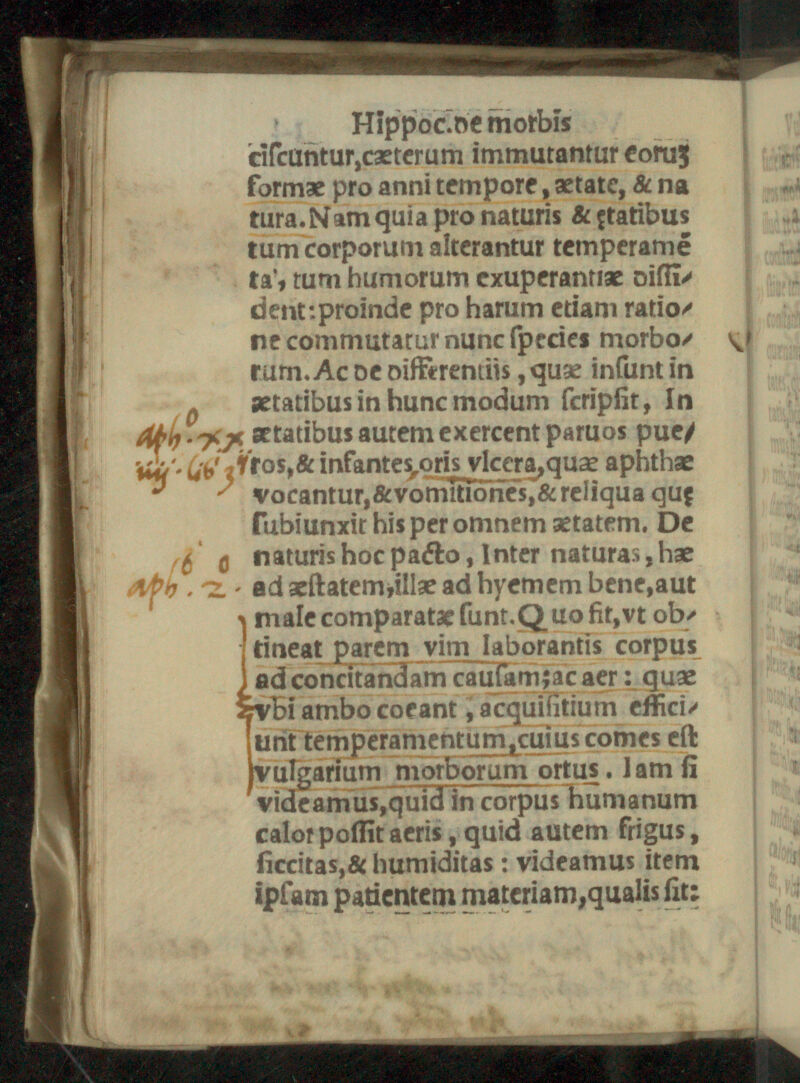 Hippoc. de morbis
ciſcuntur,cæterum immutantur eoruꝫ
formæ pro anni tempore, ætate, & na
tura. Nam quia pro naturis & ętatibus
tum corporum alterantur temperamē
ta, tum humorum exuperantiæ diſſi-
dent: proinde pro harum etiam ratio-
ne commutatur nunc ſpecies morbo-
rum. Ac de differentiis, quæ inſunt in
ætatibus in hunc modum ſcripſit, In
ætatibus autem exercent paruos pue-
ros,& infantes,oris vlcera,quæ aphthæ
vocantur,& vomitiones,& reliqua quę
ſubiunxit his per omnem ætatem. De
naturis hoc pacto, Inter naturas, hæ
ad æſtatem,illæ ad hyemem bene,aut
male comparatæ ſunt. Quo fit,vt ob-
tineat parem vim laborantis corpus
ad concitandam cauſam; ac aer: quæ
vbi ambo coeant, acquiſitium effici-
unt temperamentum,cuius comes eſt
vulgarium morborum ortus. Iam ſi
videamus,quid in corpus humanum
calor poſſit aeris, quid autem frigus,
ſiccitas,& humiditas: videamus item
ipſam patientem materiam,qualis ſit:
aph. xx
aph. 2.